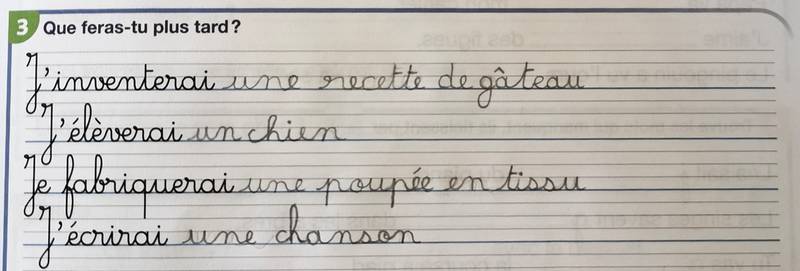 3 Que feras-tu plus tard ?
J'inventerai une recette de gâteau
J'élèverai un chien
Je fabriquerai une poupée en tissu
J'écrirai une chanson